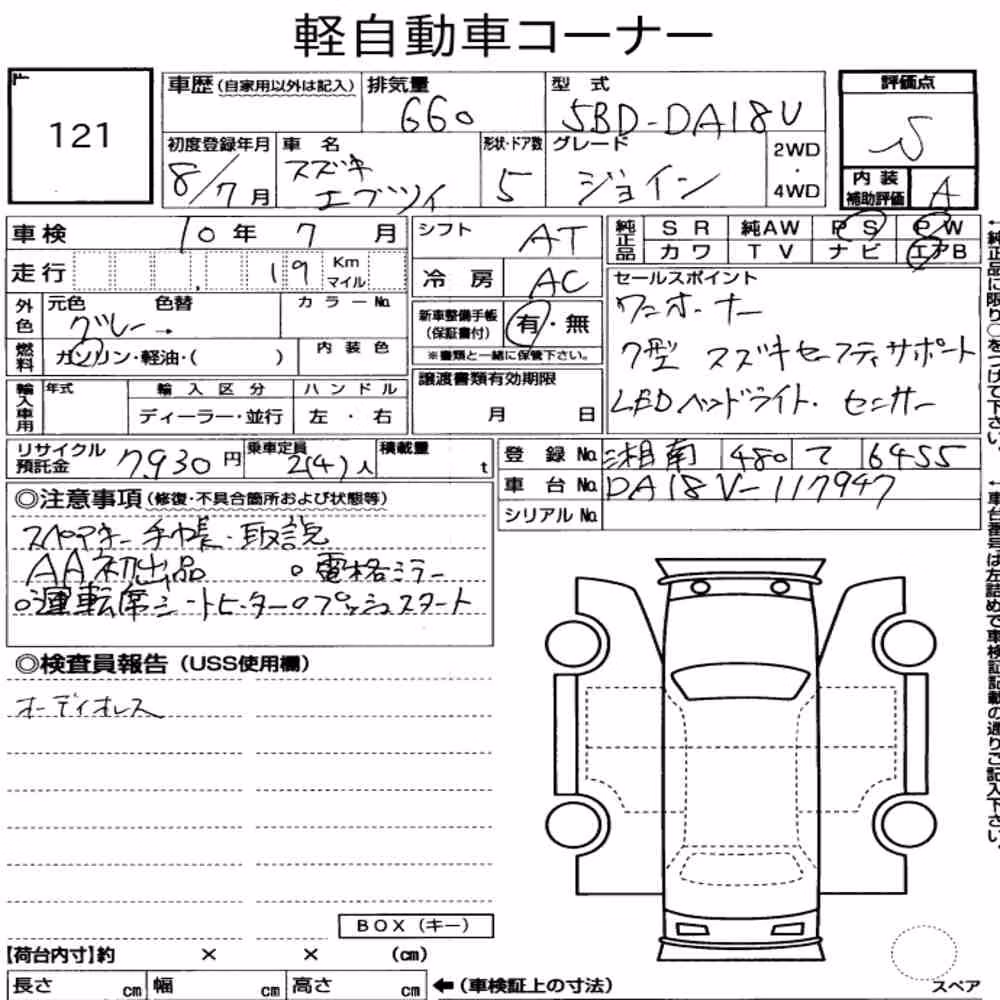 軽自動車コーナー
121
車歴(自家用以外は記入)
排気量
660
型式
5BD-DA18V
評価点
S
初度登録年月
8/7月
車名
スズキ
エブリイ
形状・ドア数
5
グレード
ジョイン
2WD
・
4WD
内装
補助評価
A
車検
10年7月
シフト
AT
純正品
SR
純AW
PS
PW
カワ
TV
ナビ
エアB
走行
19
Km
マイル
冷房
AC
セールスポイント
ワンオーナー
7型 スズキセーフティサポート
LEDヘッドライト・センサー
外色
元色
色替
カラーNo.
グレー→
新車整備手帳
(保証書付)
有・無
※書類と一緒に保管下さい。
燃料
ガソリン・軽油・( )
内装色
譲渡書類有効期限
月 日
輸入車用
年式
輸入区分
ハンドル
ディーラー・並行
左・右
リサイクル
預託金
7,930円
乗車定員
2(4)人
積載量
t
登録No.
湘南
480
て
6455
車台No.
DA18V-117947
シリアルNo.
◎注意事項(修復・不具合箇所および状態等)
スペアキー 手帳・取説
AA初出品 ○電格ミラー
○運転席シートヒーター○プッシュスタート
◎検査員報告(USS使用欄)
オーディオレス
BOX(キー)
【荷台内寸】約 × × (cm)
長さ cm
幅 cm
高さ cm
←(車検証上の寸法)
スペア
←純正品に限り○をつけて下さい。
←車台番号は左詰めで車検証記載の通りご記入下さい。